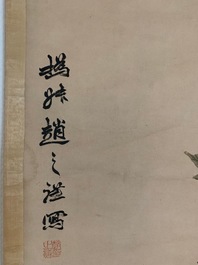 撝叔趙之謙寫